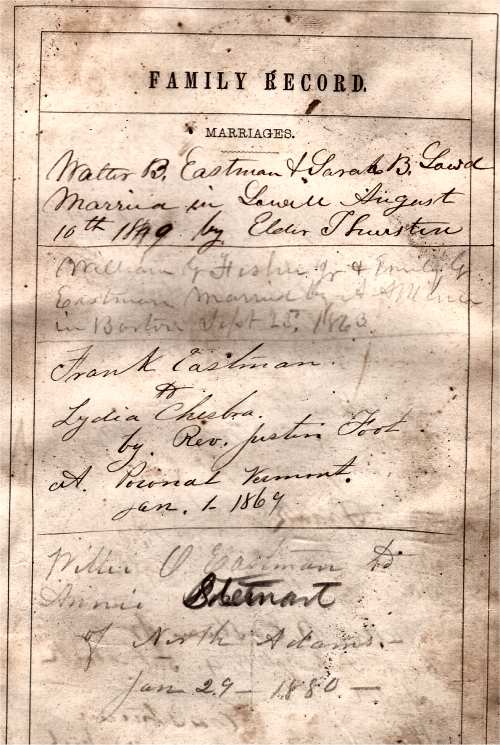 FAMILY RECORD.
MARRIAGES.
Walter B. Eastman & Sarah B. Lowd
Married in Lowell August
10th 1849 by Elder Thurston
William G Fisher Jr & Emily G
Eastman Married by A A Miner
in Boston Sept 25, 1863
Frank Eastman.
to
Lydia Chesbra.
by Rev. Justin Foot
at Pownal Vermont.
Jan. 1 - 1869
Willie O Eastman to
Annie Stewart
of North Adams -
Jan 29 - 1880 -